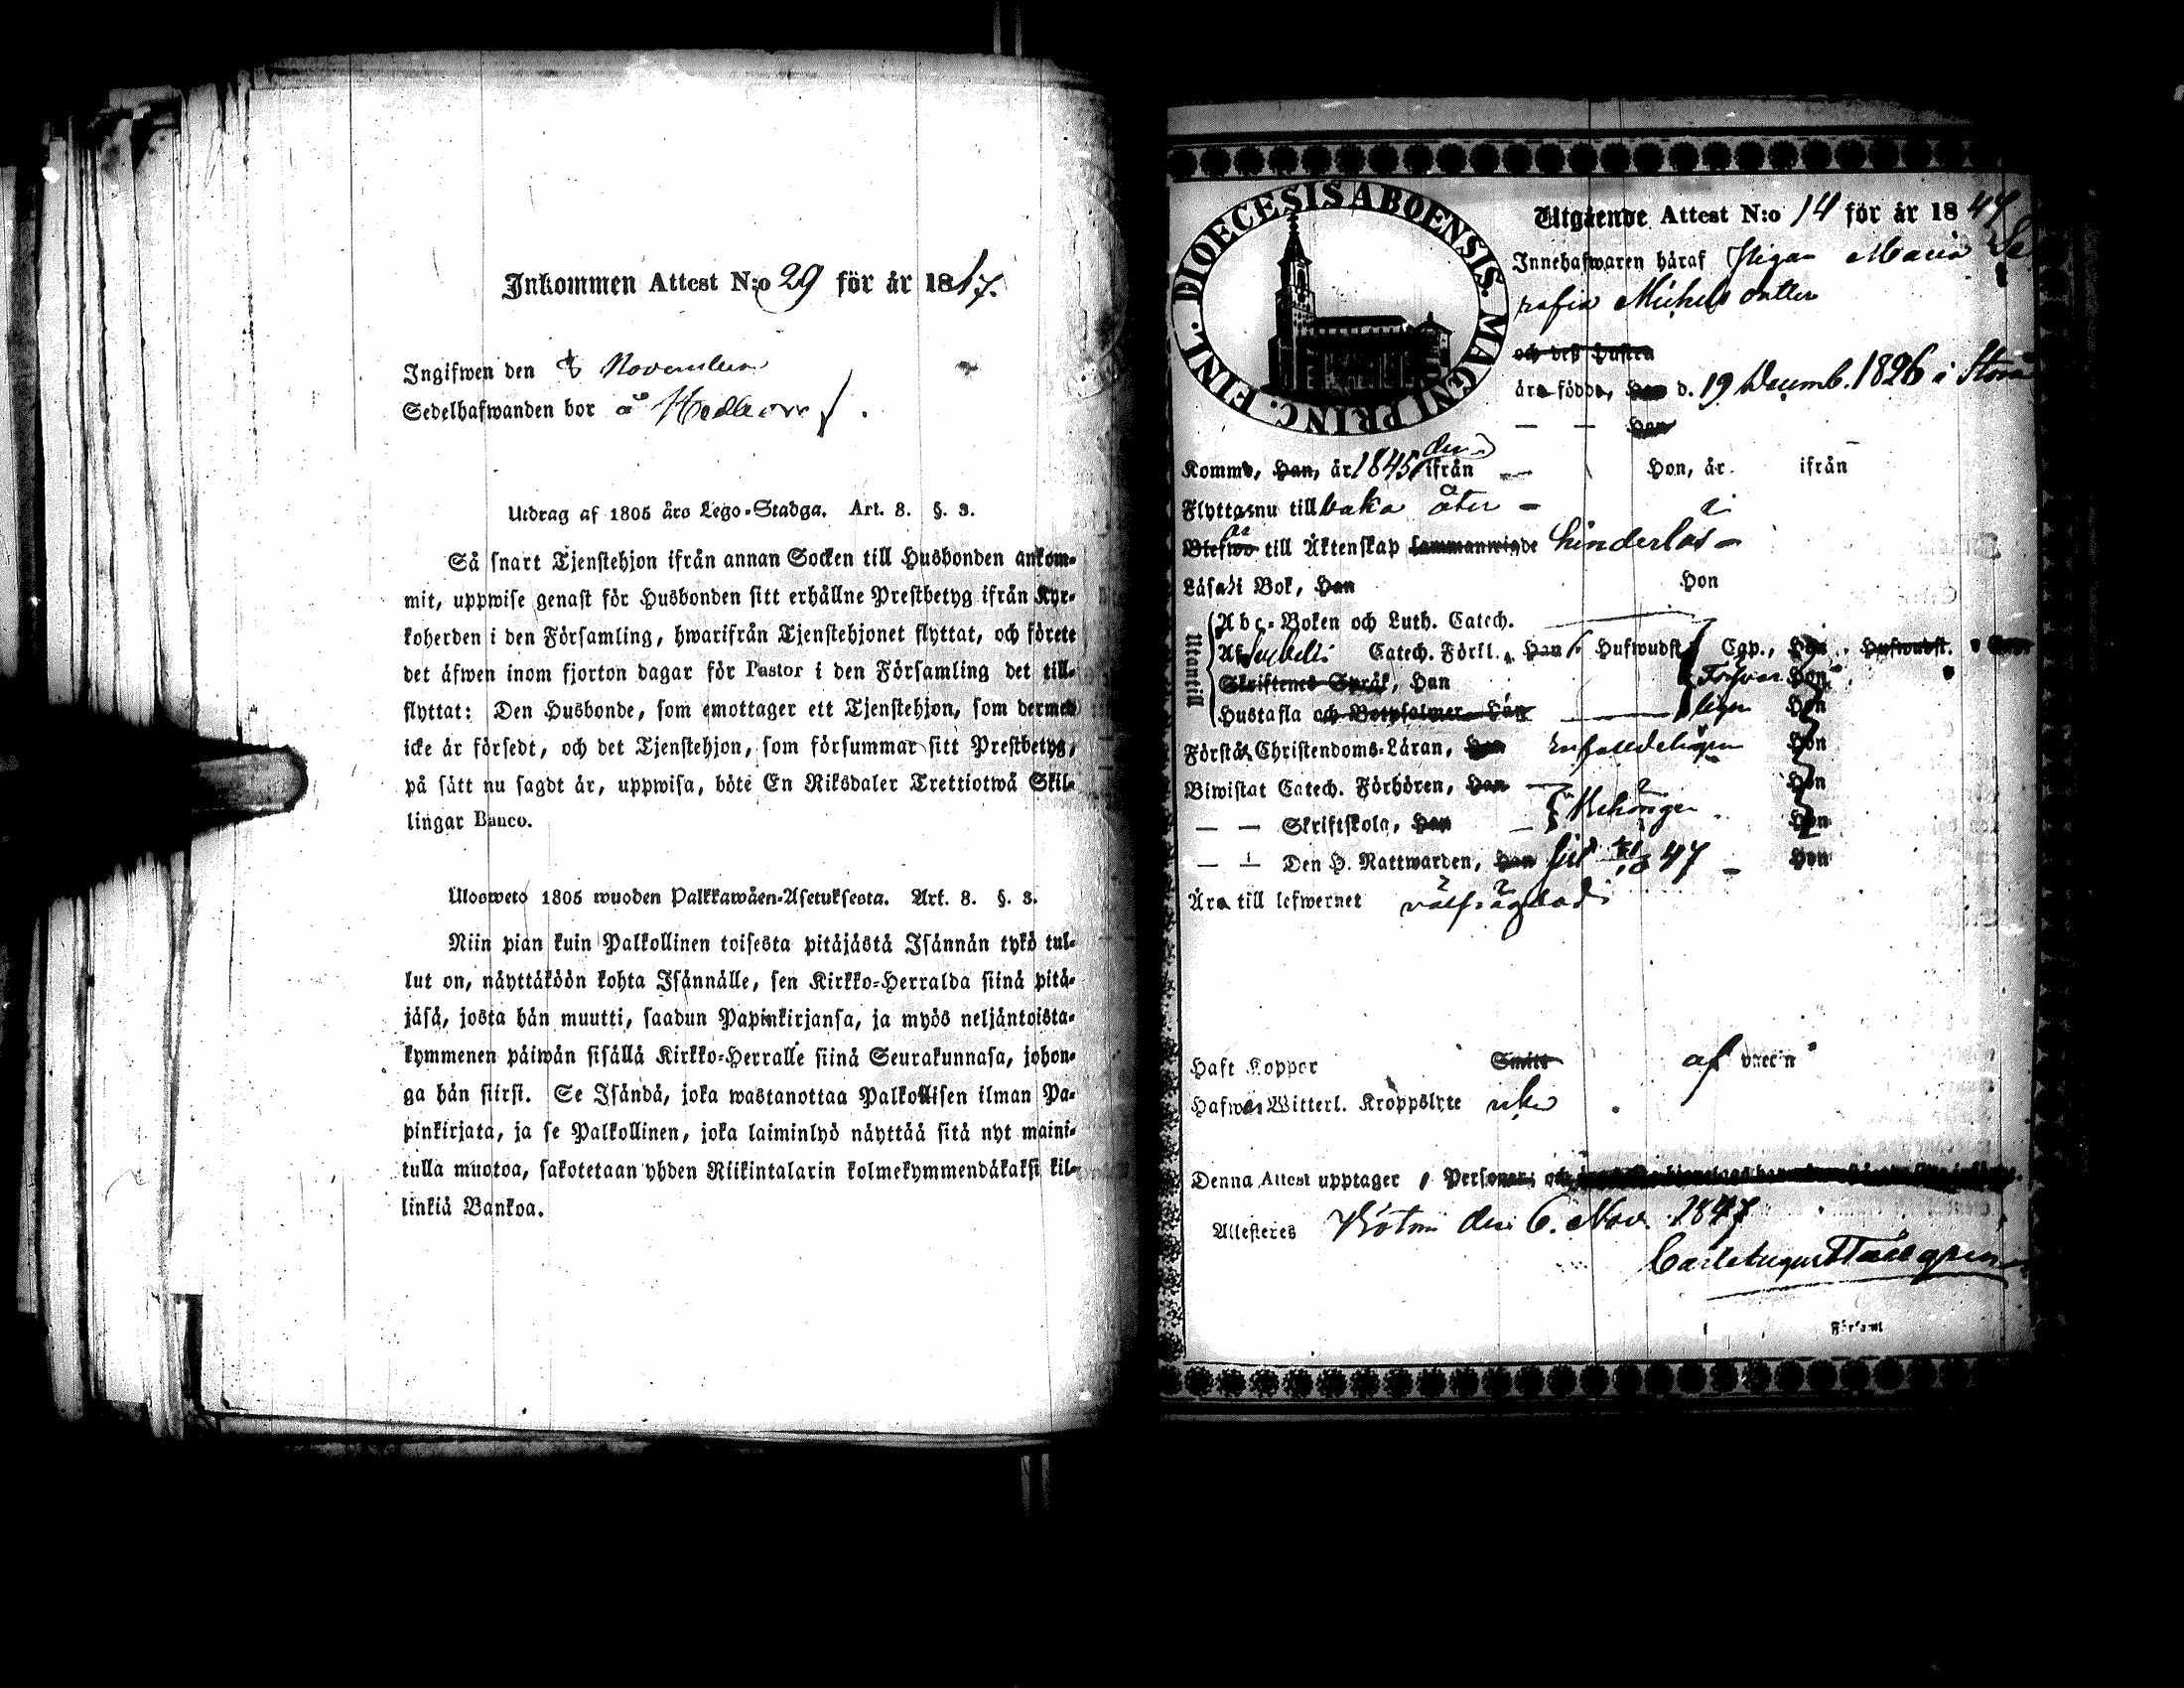 Inkommen Attest N:o 29 för år 1817.
Ingifwen den 8 November
Sedelhafwanden bor å
Utdrag af 1805 års Lego-Stadga. Art. 8. §. 3.
Så snart Tjenstehjon ifrån annan Socken till Husbonden ankom-
mit, uppwise genast för Husbonden sitt erhållne Prestbetyg ifrån Kyr-
koherden i den Församling, hwarifrån Tjenstehjonet flyttat, och förete
det äfwen inom fjorton dagar för Pastor i den Församling det till-
flyttat: Den Husbonde, som emottager ett Tjenstehjon, som dermed
icke är försedt, och det Tjenstehjon, som försummar sitt Prestbetyg,
på sätt nu sagdt är, uppwisa, böte En Riksdaler Trettiotwå Skil-
lingar Banco.
Uloosweto 1805 wuoden Palkkawäen-Asetuksesta. Art. 8. §. 3.
Niin pian kuin Palkollinen toisesta pitäjästä Isännän tykö tul-
lut on, näyttäköön kohta Isännälle, sen Kirkko-Herralda siinä pitä-
jäsä, josta hän muutti, saadun Papinkirjansa, ja myös neljäntoista-
kymmenen päiwän sisällä Kirkko-Herralle siinä Seurakunnasa, johon-
ga hän siirsi. Se Isändä, joka wastanottaa Palkollisen ilman Pa-
pinkirjata, ja se Palkollinen, joka laiminlyö näyttää sitä nyt maini-
tulla muotoa, sakotetaan yhden Riikintalarin kolmekymmendäkaksi kil-
linkiä Bankoa.
DIOECESIS ABOENSIS. MAGNI PRINC. FINL.
Utgående Attest N:o 14 för år 1847
Innehafwaren häraf Pigan Maria Se
rafia Michelsdotter
och deß hustru
äro födde, Han d. 19 Decemb. 1826 i Storå
— — Hon
Kommo, Han, år 1845 ifrån — Hon, år ifrån
Flytta nu tillbaka åter –
Blefwo till Äktenskap sammanwigde hinderlös –
Läsa i Bok, Han Hon
Utantill
Abc-Boken och Luth. Catech.
Af Svebelii Catech. Förkl., Han 6 Hufwudst. Cap., Hon Hufwudst.
Skriftenes Språk, Han Försvar- Hon
Hustafla och Botpsalmer Han ligen Hon
Förstå Christendoms-Läran, Han enfaldeligen Hon
Biwistat Catech. Förhören, Han Hon
— — Skriftskola, Han Behörigen Hon
— — Den H. Nattwarden, Han sist 47 – Hon
Äro till lefwernet välfrägdad
Haft Koppor Smitt af vaccin
Hafwa Witterl. Kroppslyte icke
Denna Attest upptager 1 Personer; och
Attesteres Bötom den 6. Nov. 1847
Carl August Tallgren
Församl